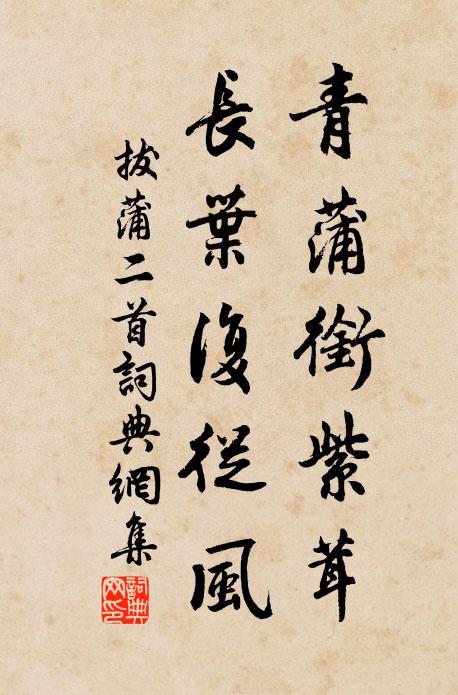 青蒲銜紫茸
長葉復從風
拔蒲二首詞典網集
詞典网印